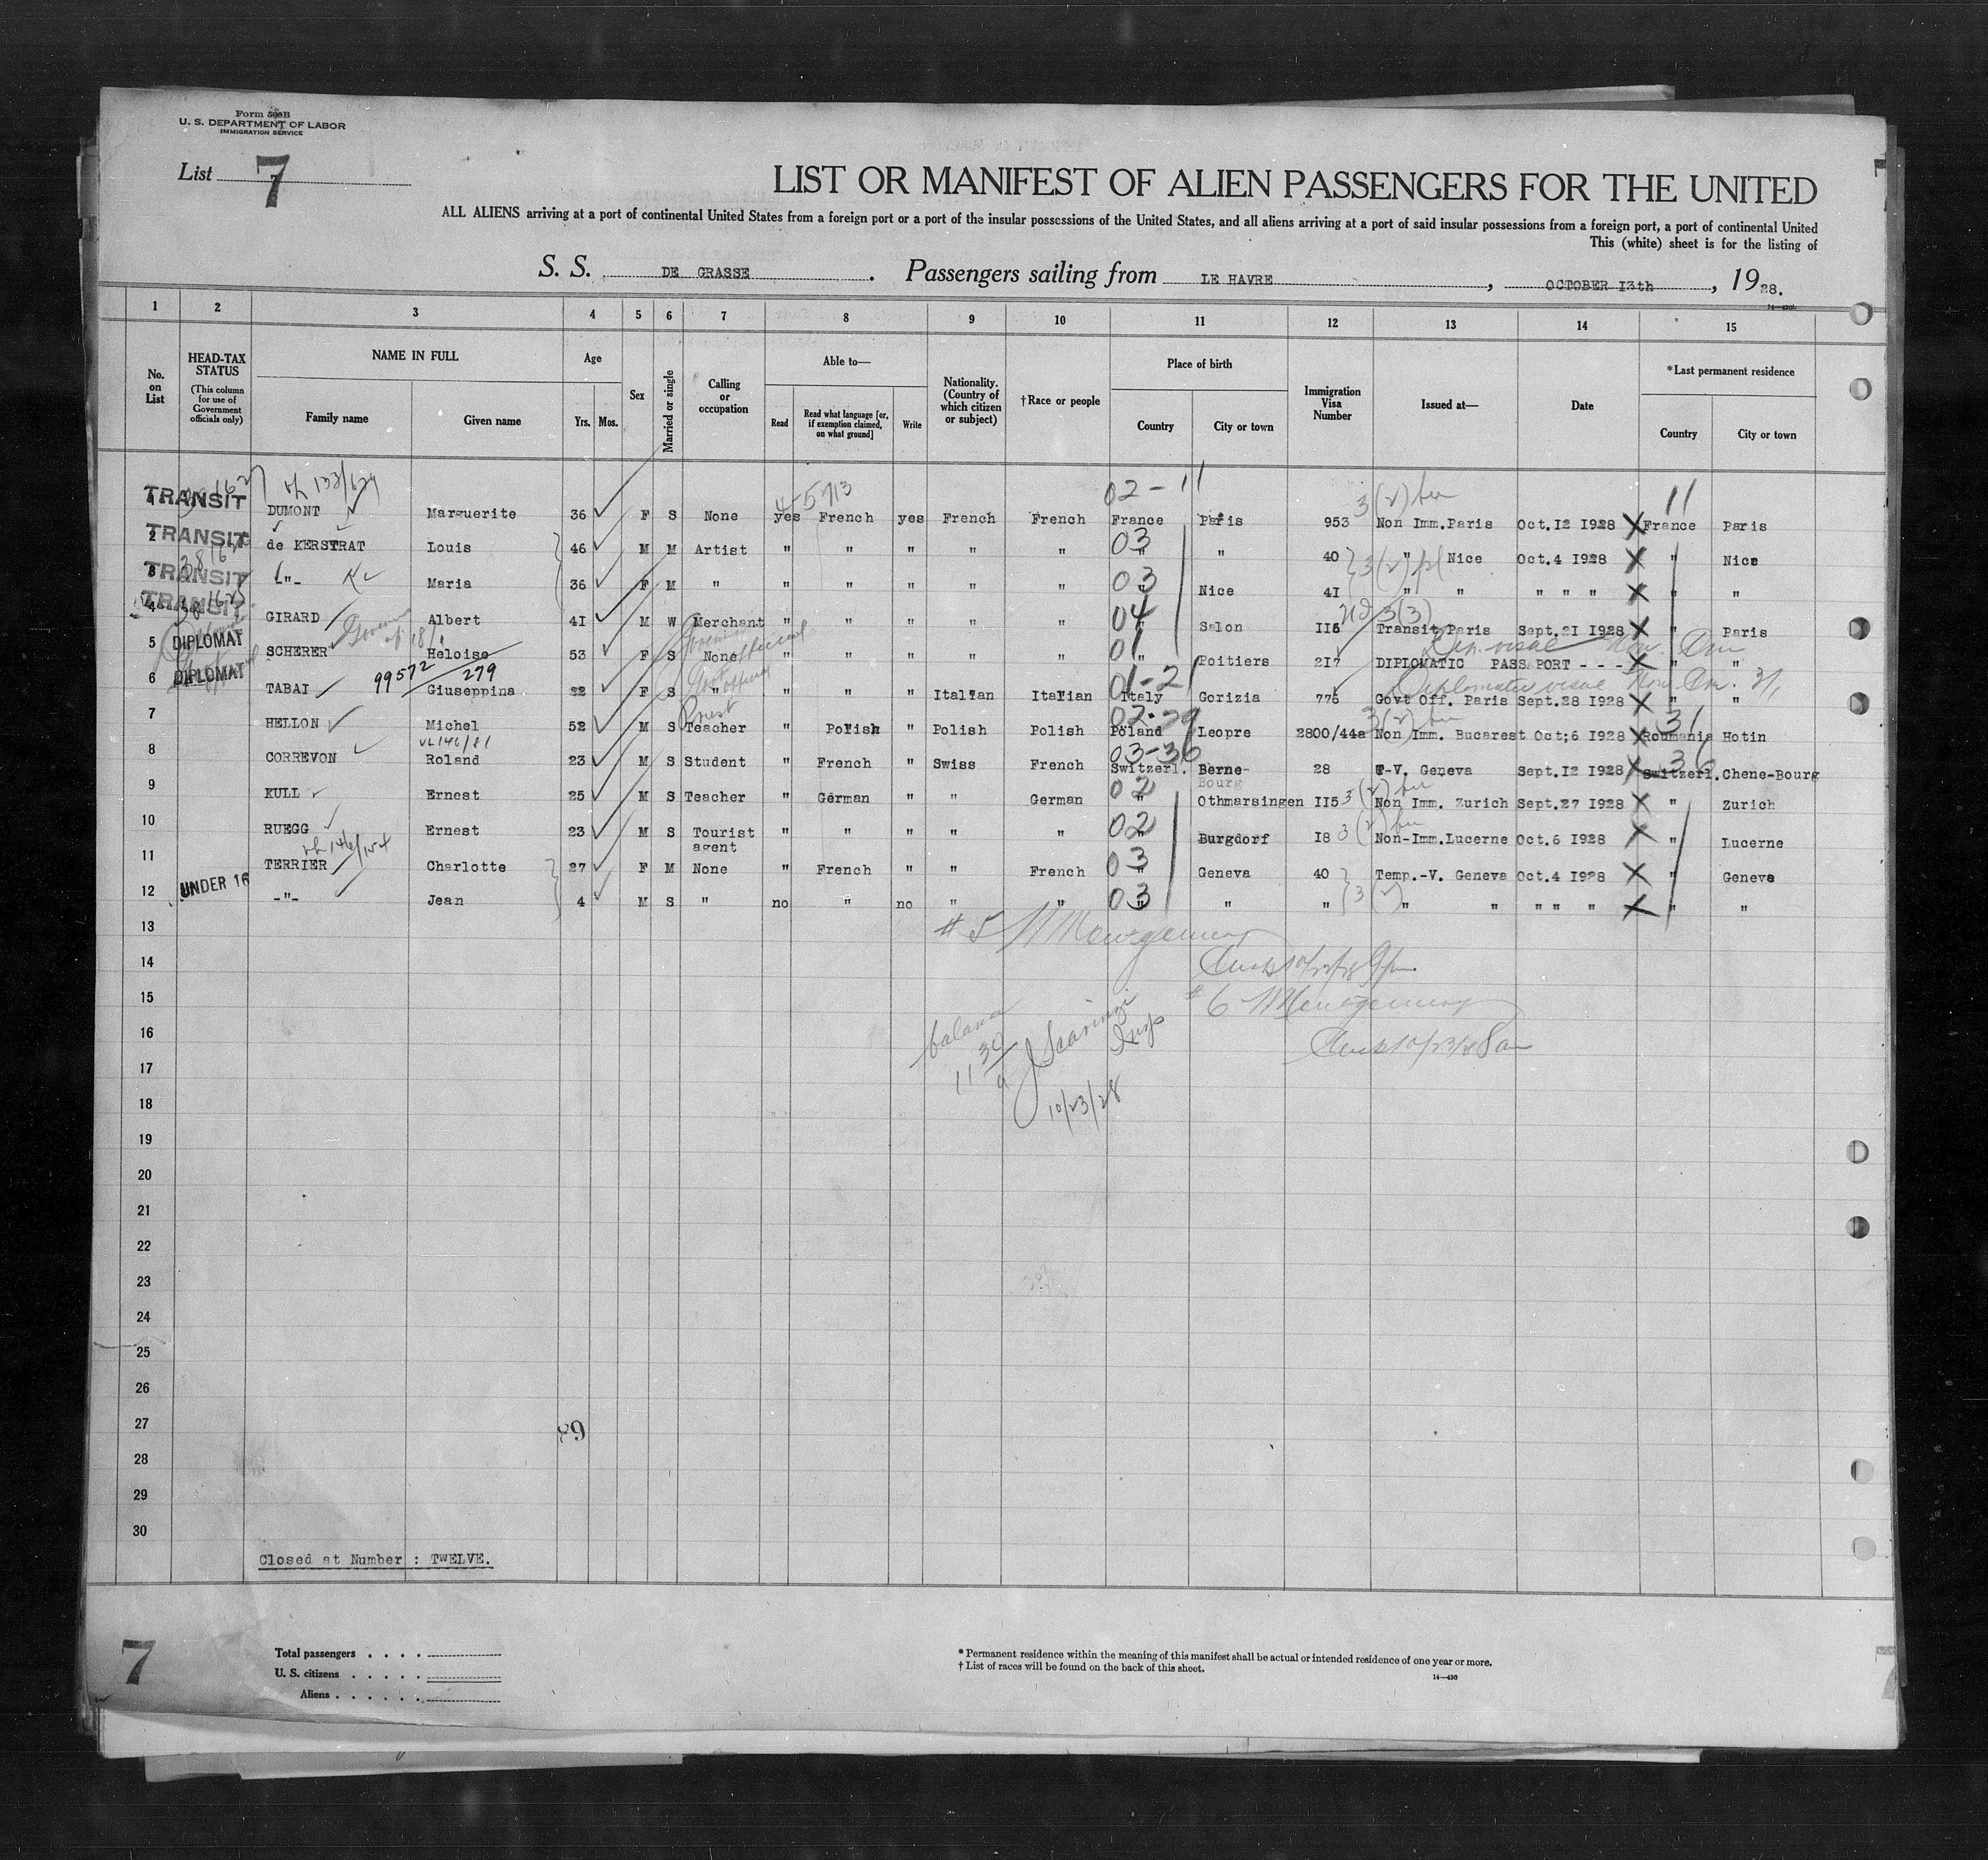 Form 500B
U. S. DEPARTMENT OF LABOR
IMMIGRATION SERVICE
List 7
LIST OR MANIFEST OF ALIEN PASSENGERS FOR THE UNITED
ALL ALIENS arriving at a port of continental United States from a foreign port or a port of the insular possessions of the United States, and all aliens arriving at a port of said insular possessions from a foreign port, a port of continental United
This (white) sheet is for the listing of
S. S. DE GRASSE. Passengers sailing from LE HAVRE, OCTOBER I3th, 1928.
1 2 3 4 5 6 7 8 9 10 11 12 13 14 15
No. on List
HEAD-TAX STATUS (This column for use of Government officials only)
NAME IN FULL
Family name Given name
Age Yrs. Mos.
Sex
Married or single
Calling or occupation
Able to—
Read Read what language [or, if exemption claimed, on what ground] Write
Nationality. (Country of which citizen or subject)
†Race or people
Place of birth
Country City or town
Immigration Visa Number
Issued at—
Date
*Last permanent residence
Country City or town
02-11 3(2) 11
1 TRANSIT DUMONT Marguerite 36 F S None yes French yes French French France Paris 953 Non Imm.Paris Oct.I2 I928 X France Paris
2 TRANSIT de KERSTRAT Louis 46 M M Artist " " " " " 03 " " 40 " Nice Oct.4 I928 X " Nice
3 TRANSIT -"- Maria 36 F M " " " " " " 03 " Nice 4I " " " " " X " "
4 TRANSIT GIRARD Albert 4I M W Merchant " " " " " 04 " Salon II5 Transit Paris Sept.2I I928 X " Paris
5 DIPLOMAT SCHERER Heloise 53 F S None " " " " " 01 " Poitiers 2I7 DIPLOMATIC PASSPORT - - - X " "
99572/279
6 DIPLOMAT TABAI Giuseppina 32 F S " " " " Italian Italian 01-21 Italy Gorizia 776 Govt Off. Paris Sept.28 I928 X " "
Diplomatic visae
7 HELLON Michel 52 M S Teacher Priest " Polish " Polish Polish Poland Leopre 2800/44a Non Imm. Bucarest Oct;6 I928 X Roumania Hotin
8 CORREVON Roland 23 M S Student " French " Swiss French 03-36 Switzerl. Berne- Bourg 28 T-V. Geneva Sept.I2 I928 X Switzerl. Chene-Bourg
9 KULL Ernest 25 M S Teacher " German " " German 02 " Othmarsingen II5 Non Imm. Zurich Sept.27 I928 X " Zurich
10 RUEGG Ernest 23 M S Tourist agent " " " " " 02 " Burgdorf I8 Non-Imm.Lucerne Oct.6 I928 X " Lucerne
11 TERRIER Charlotte 27 F M None " French " " French 03 " Geneva 40 Temp.-V. Geneva Oct.4 I928 X " Geneva
12 UNDER 16 -"- Jean 4 M S " no " no " " 03 " " " " " " " " X " "
13
14
15
16
17
18
19
20
21
22
23
24
25
26
27
28
29
30
#5
#6
10/23/28
Closed at Number : TWELVE.
7
Total passengers . . . .
U. S. citizens . . . . .
Aliens . . . . . .
* Permanent residence within the meaning of this manifest shall be actual or intended residence of one year or more.
† List of races will be found on the back of this sheet.
14—430